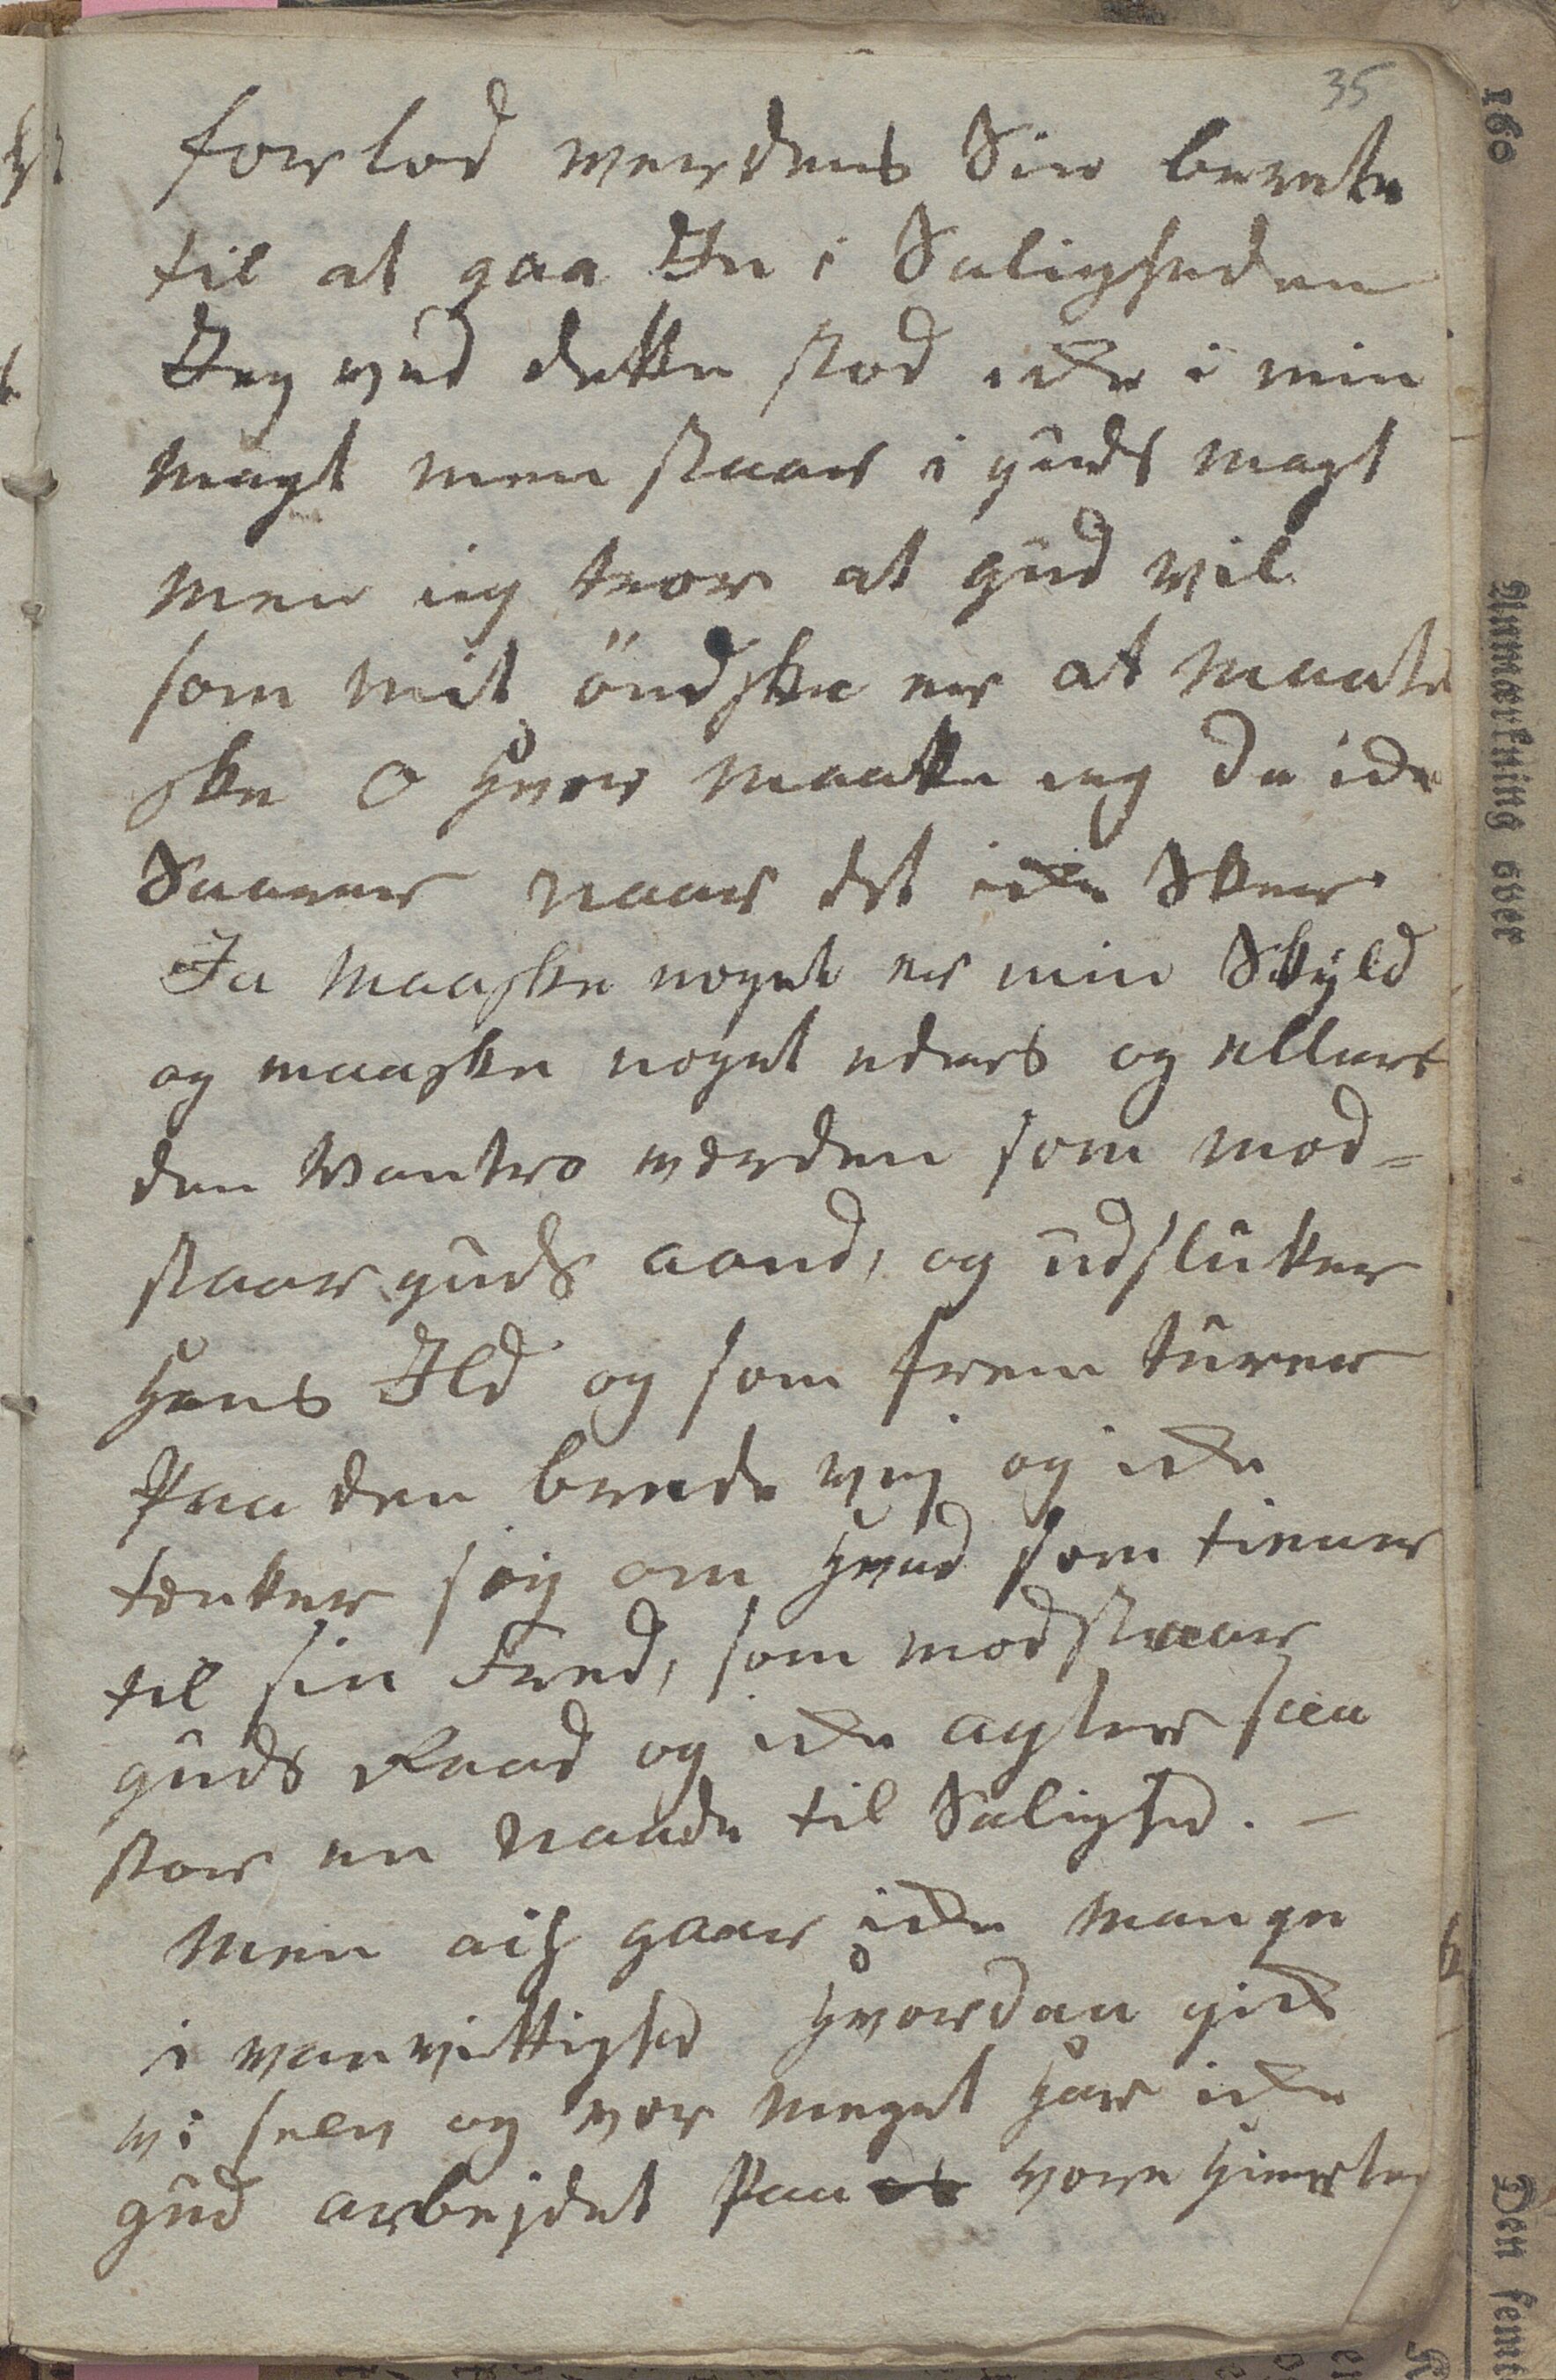 35
forlod werdens Sin berete
til at gaa In i Saligheden
Jeg ved dette stod icke i min
magt men staar i guds magt
men ieg troer at gud vil
som mit öndske er at maate
ske o Hvor maatte ieg da icke
Saarer naar det icke Skeer
Ja maaske noget er min Skyld
og maaske noget eders og ellers
den wantro verden som mod=
staar guds aand, og udslukker
Hans Ild og som frem turer
Paa den brede vej og icke
tenker sig om Hvad som tiener
til sin Fred, som modstaar
guds Raad og icke agter saa
stor en Naade til Salighed. –
Men ach gaar icke mange
i wanvittighed Hvordan gick
wi selv og vor meget Har icke
gud arbejdet Paa vore Hierter
160
Anmærkning over
Den femt